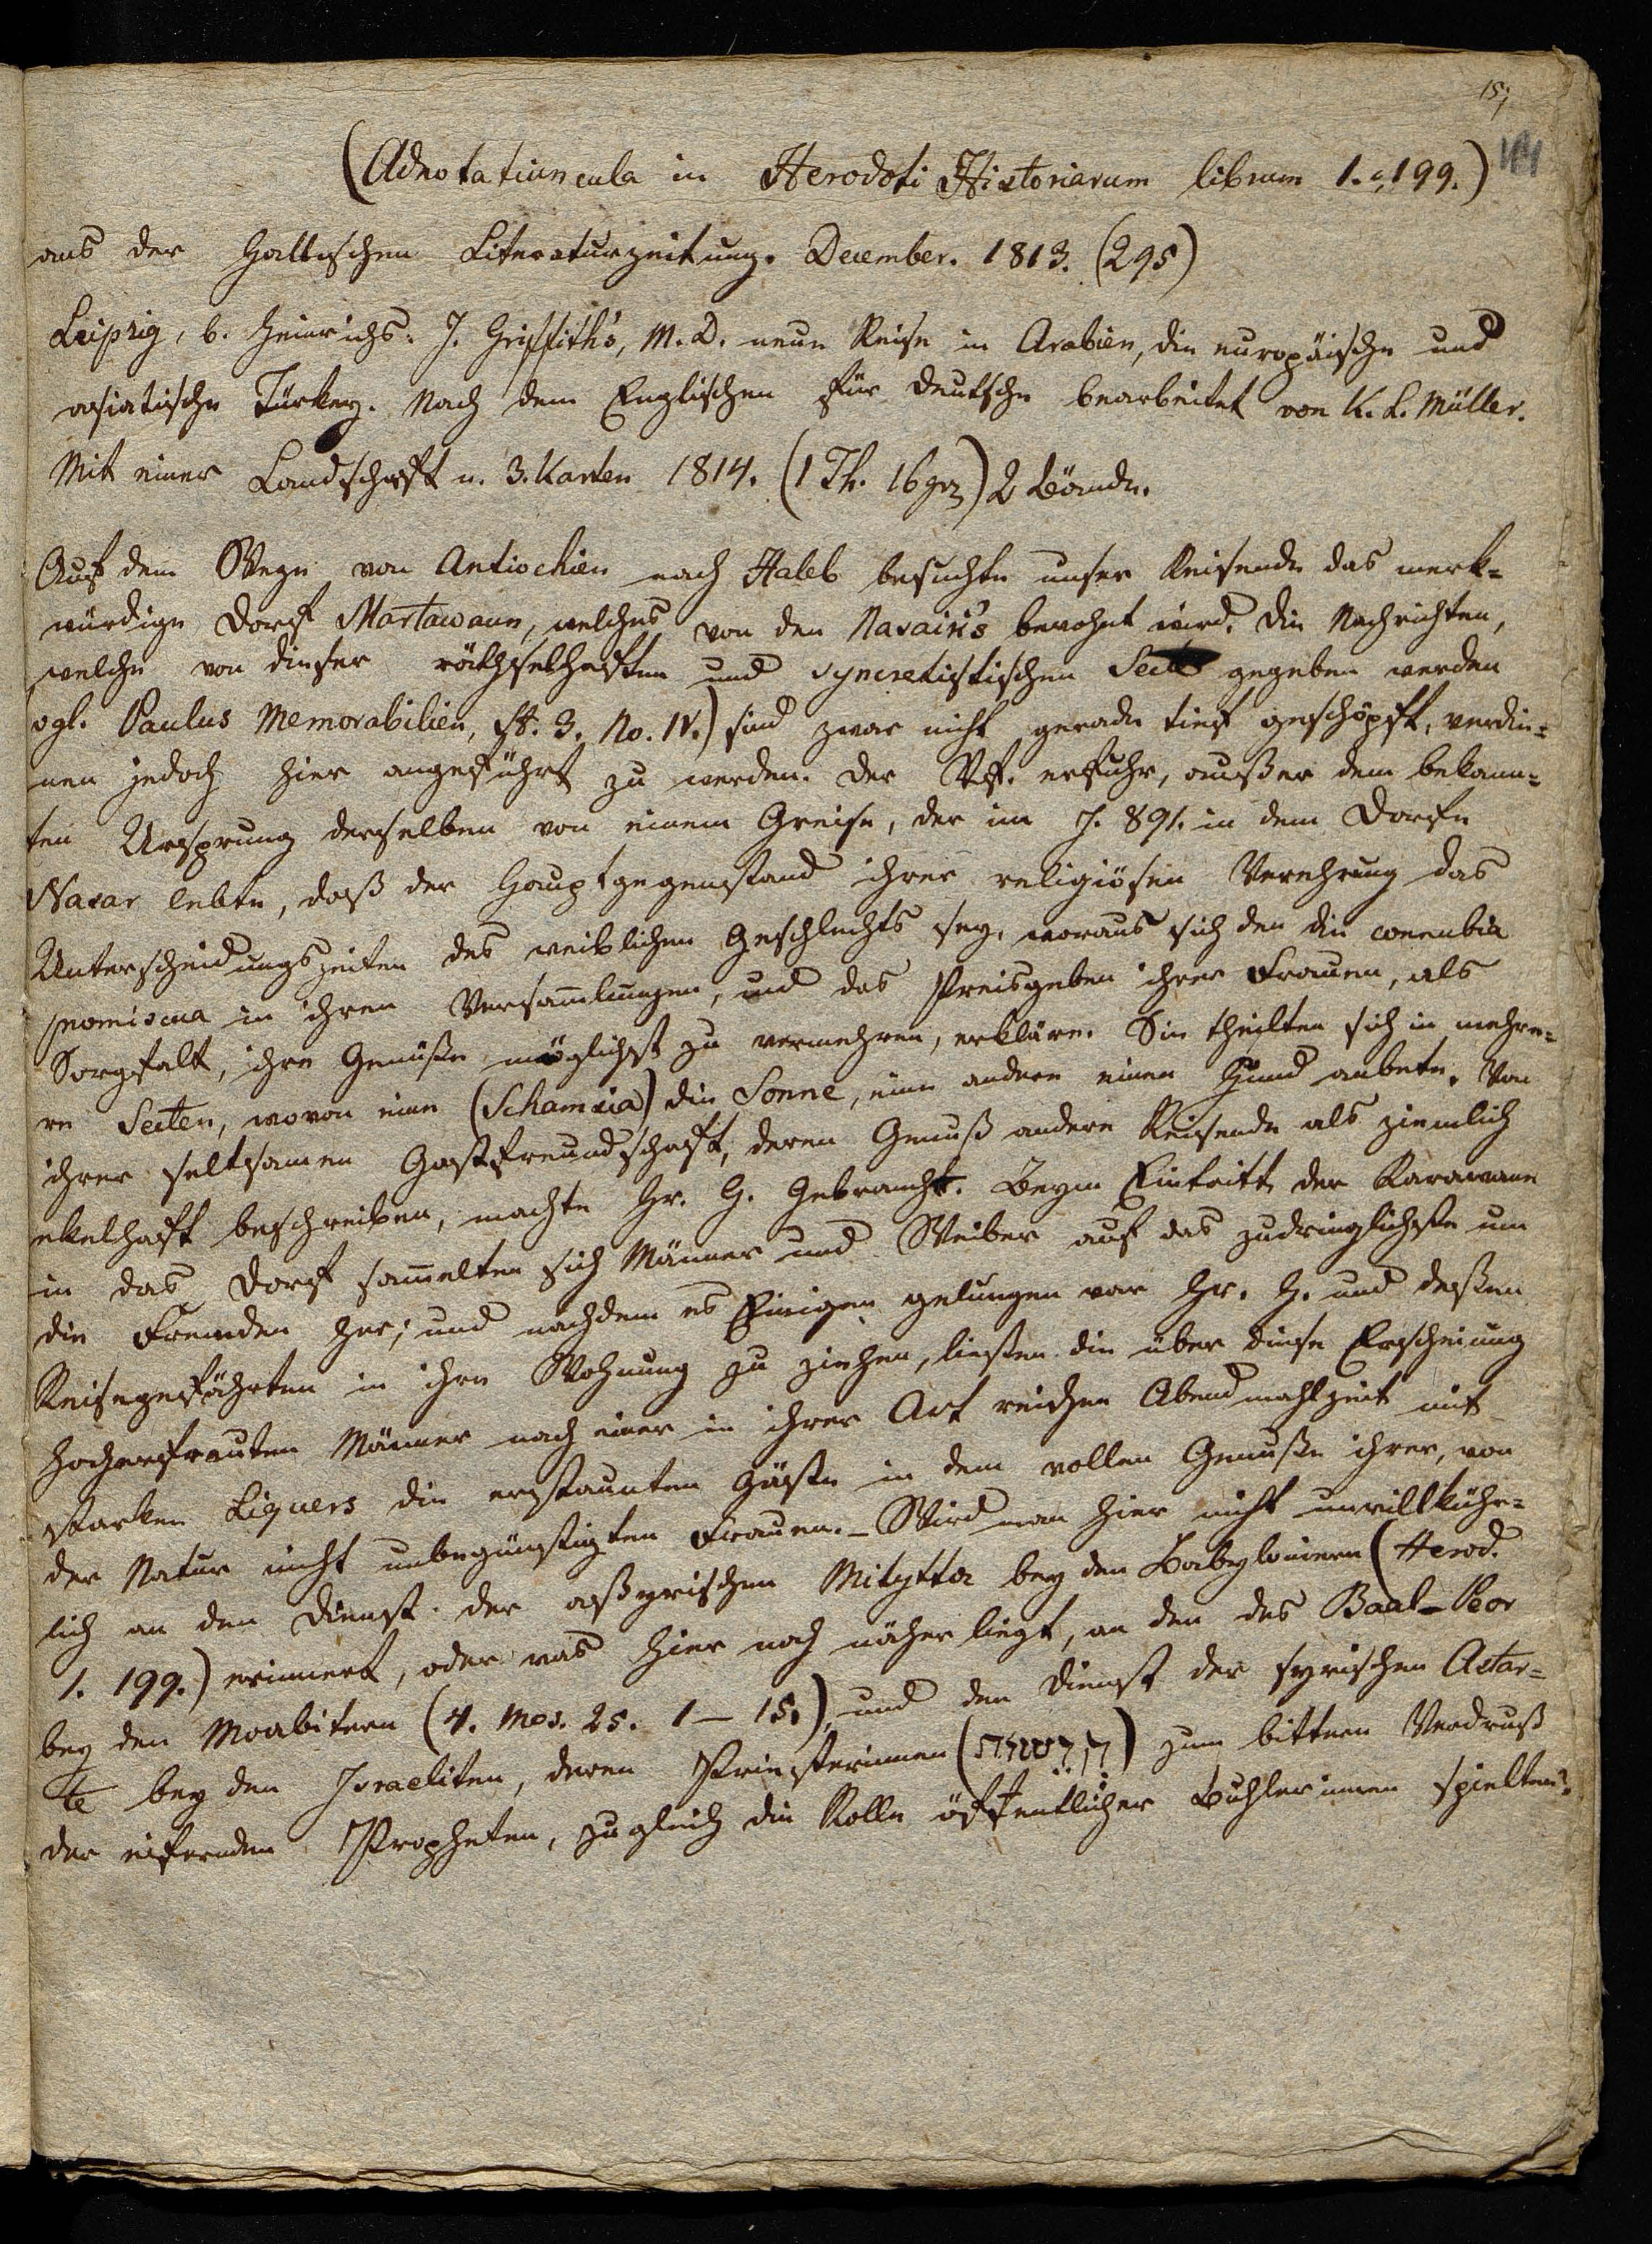 15,
(Adnotatiuncula in Herodoti Historiarum librum 1. c. 199.)
aus der Hallischen Literaturzeitung. December. 1813. (295)
Leipzig, b. Heinrichs: J. Griffith's, M. D. neue Reise in Arabien, die europäische und
asiatische Türkey. Nach dem Englischen für Deutsche bearbeitet von K. L. Müller.
Mit einer Landschaft u. 3. Karten 1814. (1 Th. 16 gr) 2 Bände.
Auf dem Wege von Antiochien nach Haleb besuchte unser Reisende das merk=
würdige Dorf Martawaun, welches von den Nasairi's bewohnt wird. Die Nachrichten,
welche von dieser räthselhaften und syncretistischen Secte gegeben werden
vgl. Paulus Memorabilien, St. 3. No. IV.) sind zwar nicht gerade tief geschöpft, verdie=
nen jedoch hier angeführt zu werden. Der Vf. erfuhr, außer dem bekann=
ten Ursprung derselben von einem Greise, der im J. 891. in dem Dorfe
Nasar lebte, daß der Hauptgegenstand ihrer religiösen Verehrung das
Unterscheidungszeiten des weiblichen Geschlechts sey, woraus sich den die concubia
promiscua in ihren Versam̄lungen, und das Preisgeben ihrer Frauen, als
Sorgfalt, ihre Genüße möglichst zu vermehren, erkläre. Sie theilten sich in mehre=
re Secten, wovon eine (Schamsia) die Sonne, eine andere einen Hund anbete. Von
ihrer seltsamen Gastfreundschaft, deren Genuß andere Reisende als ziemlich
ekelhaft beschreiben, machte Hr. G. Gebraucht. Beym Eintritt der Karawane
in das Dorf sam̄elten sich Männer und Weiber auf das zudringlichste um
die Fremden her; und nachdem es Einigen gelungen war Hr. G. und deßen
Reisegefährten in ihre Wohnung zu ziehen, ließen die über diese Erscheinung
hocherfreuten Männer nach einer in ihrer Art reichen Abendmahlzeit mit
starken Liquers die erstaunten Gäste in dem vollen Genuße ihrer, von
der Natur nicht unbegünstigten Frauen. – Wird man hier nicht unwillkühr=
lich an den Dienst der aßyrischen Mitytta bey den Babyloniern (Herod.
1. 199.) erinnert, oder was hier noch näher liegt, an den des Baal-Peor
bey den Moabitern (4. Mos. 25. 1 – 15.), und den Dienst der syrischen Astar=
te bey den Israeliten, deren Priesterinnen () zum bittern Verdruß
der eifernden Propheten, zugleich die Rolle öffentlicher Buhlerinnen spielten.